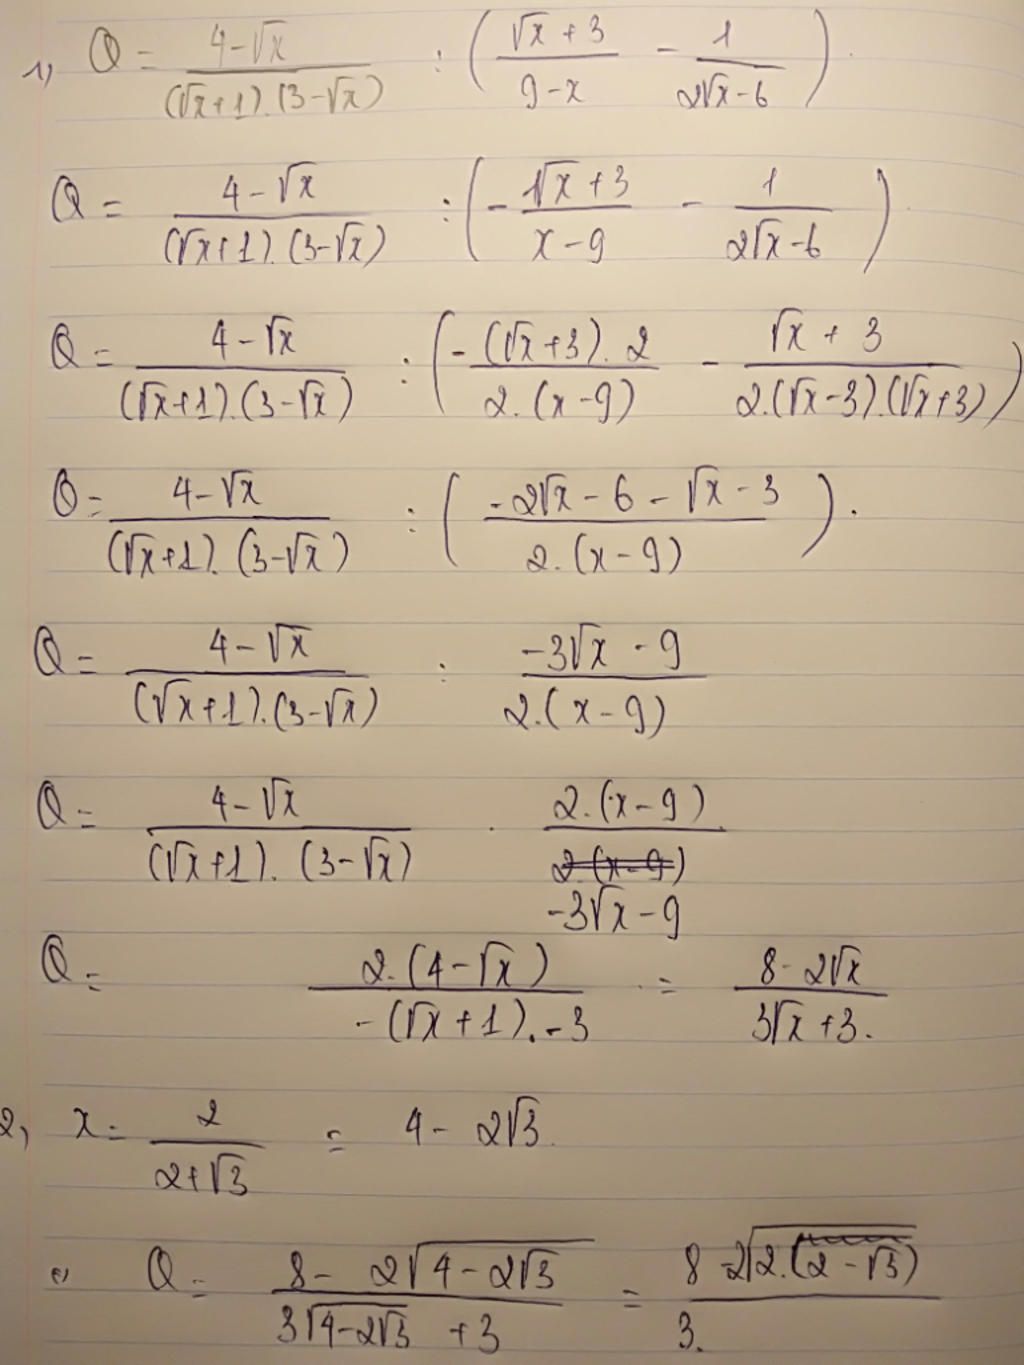 1) Q = (4-√x)/((√x+1).(3-√x)) : ((√x+3)/(9-x) - 1/(2√x-6)).
Q = (4-√x)/((√x+1).(3-√x)) : (-(√x+3)/(x-9) - 1/(2√x-6)).
Q = (4-√x)/((√x+1).(3-√x)) : (-((√x+3).2)/(2.(x-9)) - (√x+3)/(2.(√x-3).(√x+3)))
Q = (4-√x)/((√x+1).(3-√x)) : ((-2√x-6-√x-3)/(2.(x-9))).
Q = (4-√x)/((√x+1).(3-√x)) : (-3√x-9)/(2.(x-9))
Q = (4-√x)/((√x+1).(3-√x)) . (2.(x-9))/(-3√x-9)
Q = (2.(4-√x))/(-(√x+1).-3) = (8-2√x)/(3√x+3).
2, x = 2/(2+√3) = 4-2√3.
Q = (8-2√(4-2√3))/(3√(4-2√3)+3) = (8-2√(2.(2-√3)))/(3.